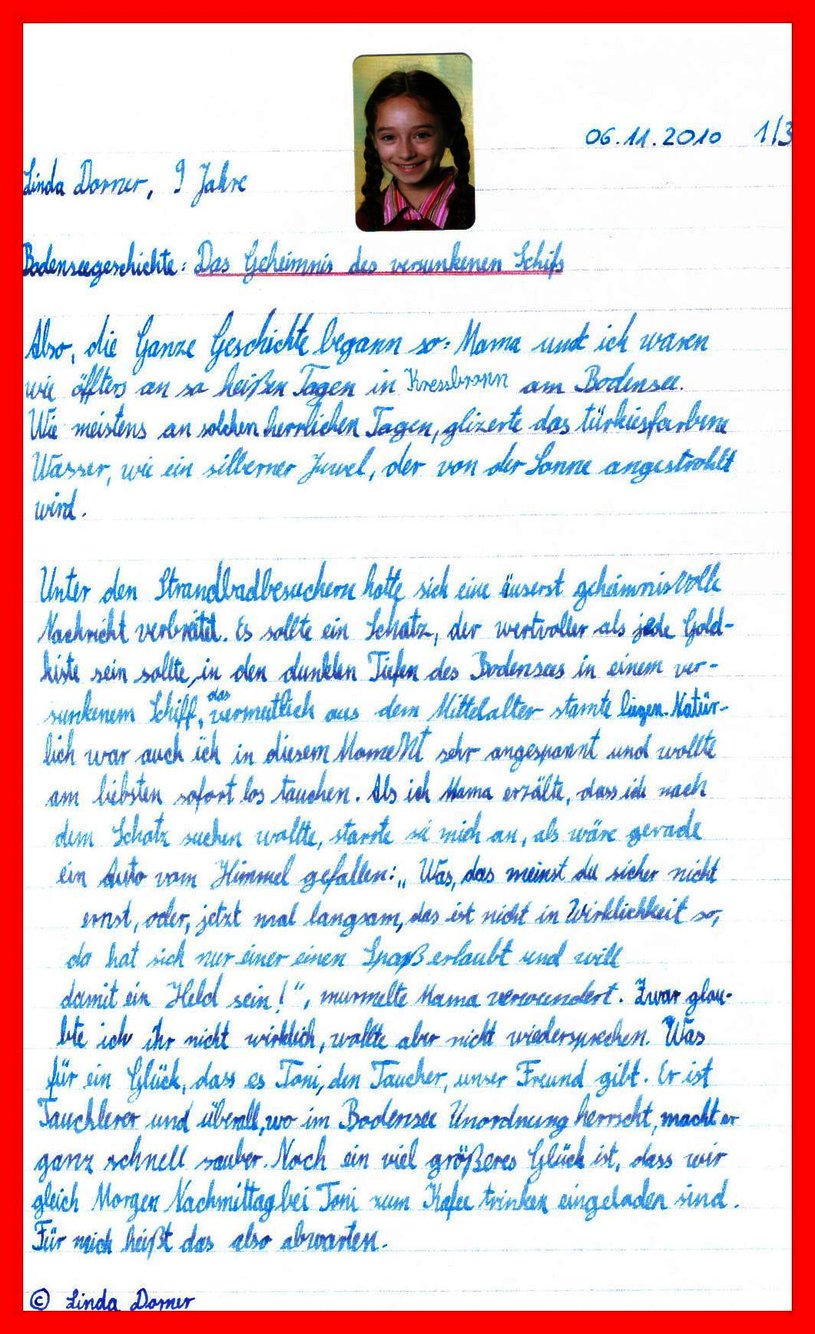 06.11.2010 1/3
Linda Domer, 9 Jahre
Bodenseegeschichte: Das Geheimnis des versunkenen Schifs
Also, die Ganze Geschichte begann so: Mama und ich waren
wie öffters an so heißen Tagen in Kressbronn am Bodensee.
Wie meistens an solchen herrlichen Tagen, glizerte das türkiesfarbene
Wasser, wie ein silberner Juwel, der von der Sonne angestrohlt
wird.
Unter den Strandbadbesuchern hatte sich eine äuserst geheimnisvolle
Nachricht verbreitet. Es sollte ein Schatz, der wertvoller als jede Gold-
kiste sein sollte, in den dunklen Tiefen des Bodensees in einem ver-
sunkenem Schiff, das vermeutlich aus dem Mittelalter stamte liegen. Natür-
lich war auch ich in diesem Moment sehr angespannt und wollte
am liebsten sofort los tauchen. Als ich Mama erzälte, dass ich nach
dem Schatz suchen wollte, starrte sie mich an, als wäre gerade
ein Auto vom Himmel gefallen: „Was, das meinst du sicher nicht
ernst, oder, jetzt mal langsam, das ist nicht in Wirklichkeit so,
da hat sich nur einer einen Spaß erlaubt und will
damit ein Held sein!“, murmelte Mama verwundert. Zwar glau-
bte ich ihr nicht wirklich, wollte aber nicht wiedersprechen. Was
für ein Glück, dass es Toni, den Taucher, unser Freund gibt. Er ist
Tauchlerer und überall, wo im Bodensee Unordnung herrscht, macht er
ganz schnell sauber. Noch ein viel größeres Glück ist, dass wir
gleich Morgen Nachmittag bei Toni zum Kafee trinken eingeladen sind.
Für mich heißt das also abwarten.
© Linda Domer